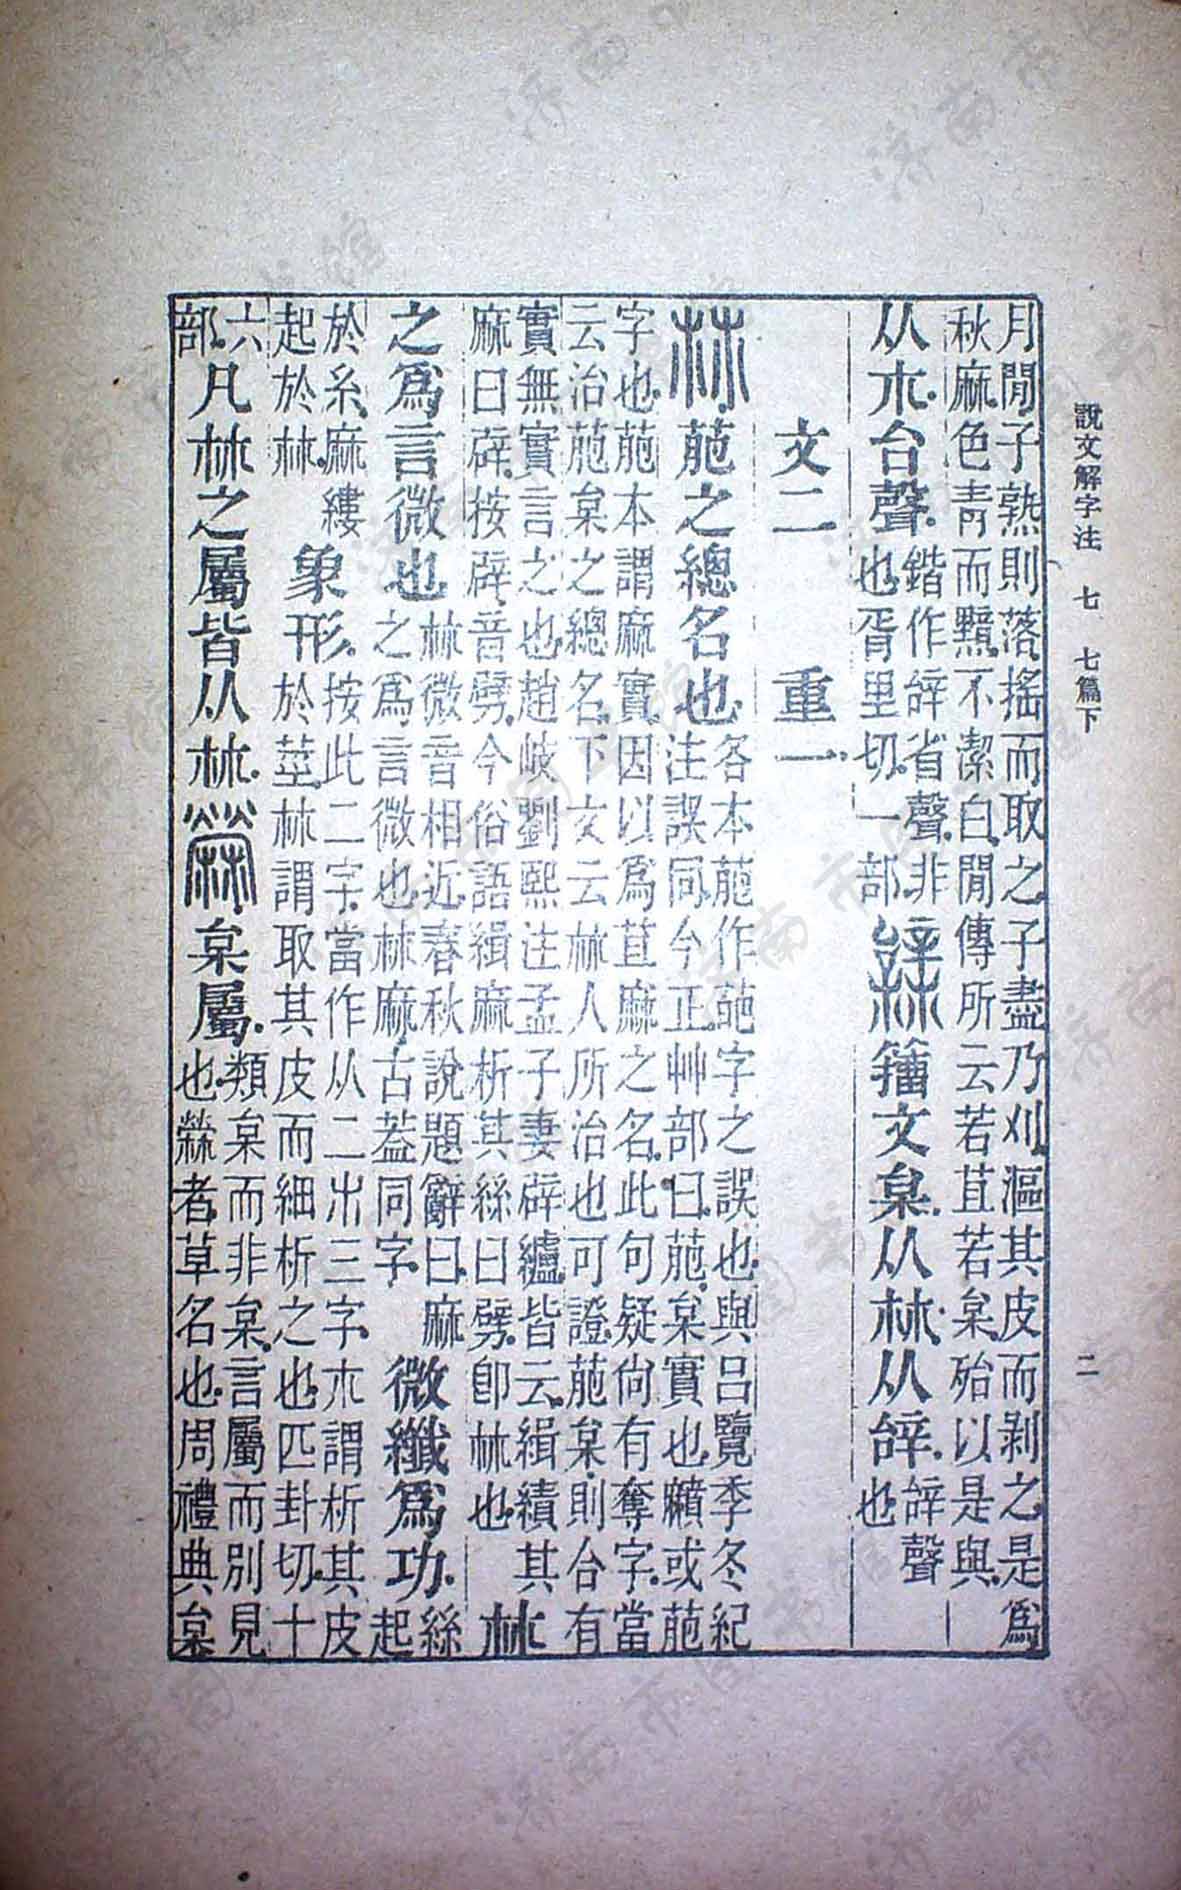 說文解字注 七 七篇下
二
月閒子熟則落搖而取之子盡乃刈漚其皮而剥之是爲
秋麻色青而黯不潔白閒傳所云若苴若枲殆以是與
从𣎳台聲
鍇作辝省聲非
也胥里切一部
籒文枲从𣏟从辝
辝聲
也
文二 重一
𣏟萉之總名也
各本萉作葩字之誤也與呂覽季冬紀
注誤同今正艸部曰萉枲實也𪎰或萉
字也萉本謂麻實因以爲苴麻之名此句疑尙有奪字當
云治萉枲之總名下文云𣏟人所治也可證萉枲則合有
實無實言之也趙岐劉熙注孟子妻辟纑皆云緝績其
麻曰辟按辟音劈今俗語緝麻析其絲曰劈卽𣏟也
𣏟
之爲言微也
𣏟微音相近春秋說題辭曰麻
之爲言微也𣏟麻古葢同字
微纖爲功
絲
起
於糸麻縷
起於𣏟
象形
按此二字當作从二𣎳三字𣎳謂析其皮
於莖𣏟謂取其皮而細析之也匹卦切十
六
部
凡𣏟之屬皆从𣏟
檾枲屬
類枲而非枲言屬而別見
也檾者草名也周禮典枲
济南市图书馆